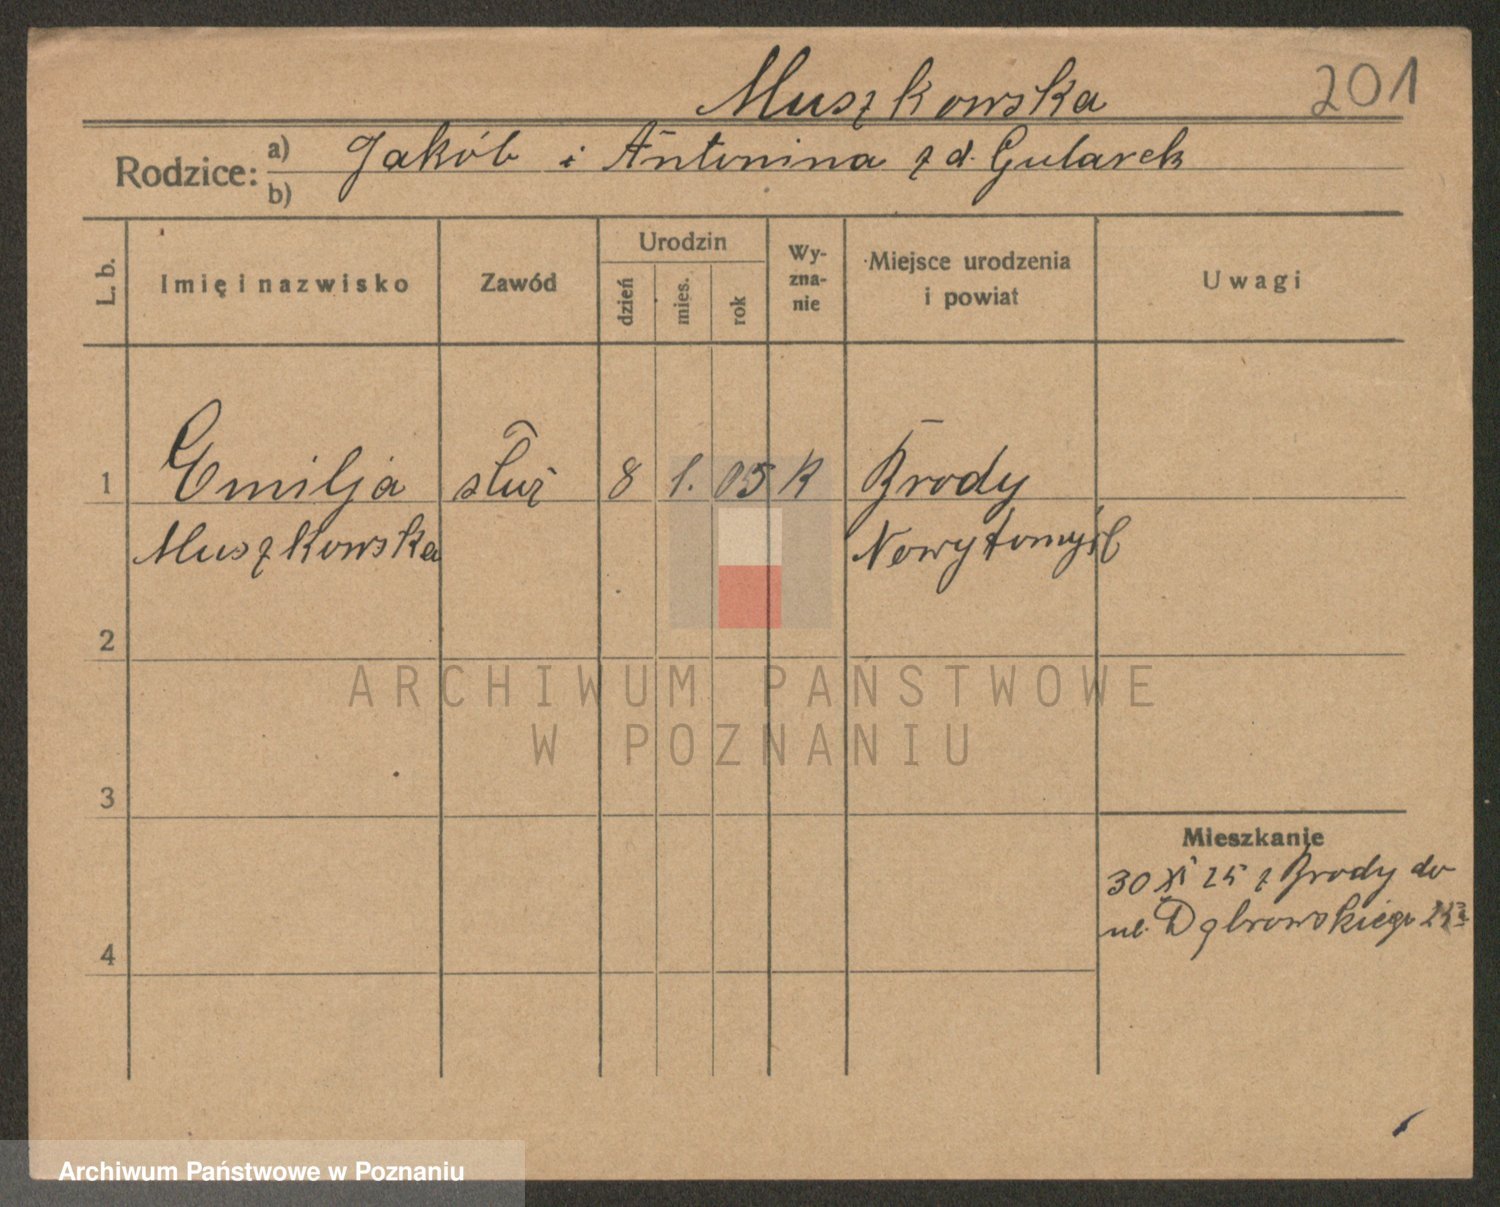 Muszkowska 201
Rodzice: a) Jakób i Antonina z d. Gularek
b)
L. b. Imię i nazwisko Zawód Urodzin dzień mies. rok Wy-zna-nie Miejsce urodzenia i powiat Uwagi
1 Emilja służ 8 1. 05 K Brody
Muszkowska Nowytomyśl
2
ARCHIWUM PAŃSTWOWE
W POZNANIU
3
Mieszkanie
30 XI 25 z Brody do
ul. Dąbrowskiego
4
Archiwum Państwowe w Poznaniu